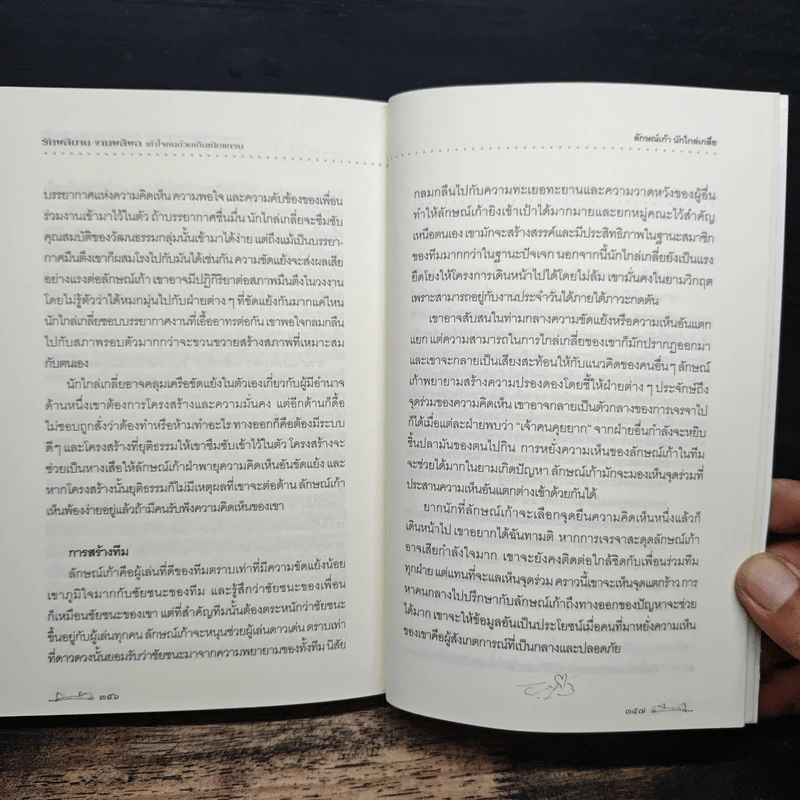 รักพลิบาน งานพลิผล เข้าใจคนด้วยเอ็นเนียแกรม
บรรยากาศแห่งความคิดเห็น ความพอใจ และความคับข้องของเพื่อน
ร่วมงานเข้ามาไว้ในตัว ถ้าบรรยากาศชื่นมื่น นักไกล่เกลี่ยจะซึมซับ
คุณสมบัติของวัฒนธรรมกลุ่มนั้นเข้ามาได้ง่าย แต่ถึงแม้เป็นบรรยา-
กาศมึนตึงเขาก็ผสมโรงไปกับมันได้เช่นกัน ความขัดแย้งจะส่งผลเสีย
อย่างแรงต่อลักษณ์เก้า เขาอาจมีปฏิกิริยาต่อสภาพมึนตึงในวงงาน
โดยไม่รู้ตัวว่าได้หมกมุ่นไปกับฝ่ายต่าง ๆ ที่ขัดแย้งกันมากแค่ไหน
นักไกล่เกลี่ยชอบบรรยากาศงานที่เอื้ออาทรต่อกัน เขาพอใจกลมกลืน
ไปกับสภาพรอบตัวมากกว่าจะขวนขวายสร้างสภาพที่เหมาะสม
กับตนเอง
นักไกล่เกลี่ยอาจคลุมเครือขัดแย้งในตัวเองเกี่ยวกับผู้มีอำนาจ
ด้านหนึ่งเขาต้องการโครงสร้างและความมั่นคง แต่อีกด้านก็ดื้อ
ไม่ชอบถูกสั่งว่าต้องทำหรือห้ามทำอะไร ทางออกก็คือต้องมีระบบ
ดีๆ และโครงสร้างที่ยุติธรรมให้เขาซึมซับเข้าไว้ในตัว โครงสร้างจะ
ช่วยเป็นหางเสือให้ลักษณ์เก้าฝ่าพายุความคิดเห็นอันขัดแย้ง และ
หากโครงสร้างนั้นยุติธรรมก็ไม่มีเหตุผลที่เขาจะต่อต้าน ลักษณ์เก้า
เห็นพ้องง่ายอยู่แล้วถ้ามีคนรับฟังความคิดเห็นของเขา
การสร้างทีม
ลักษณ์เก้าคือผู้เล่นที่ดีของทีมตราบเท่าที่มีความขัดแย้งน้อย
เขาภูมิใจมากกับชัยชนะของทีม และรู้สึกว่าชัยชนะของเพื่อน
ก็เหมือนชัยชนะของเขา แต่ที่สำคัญทีมนั้นต้องตระหนักว่าชัยชนะ
ขึ้นอยู่กับผู้เล่นทุกคน ลักษณ์เก้าจะหนุนช่วยผู้เล่นดาวเด่น ตราบเท่า
ที่ดาวดวงนั้นยอมรับว่าชัยชนะมาจากความพยายามของทั้งทีม นิสัย
๓๔๖
ลักษณ์เก้า นักไกล่เกลี่ย
กลมกลืนไปกับความทะเยอทะยานและความวาดหวังของผู้อื่น
ทำให้ลักษณ์เก้ายิงเข้าเป้าได้มากมายและยกหมู่คณะไว้สำคัญ
เหนือตนเอง เขามักจะสร้างสรรค์และมีประสิทธิภาพในฐานะสมาชิก
ของทีมมากกว่าในฐานะปัจเจก นอกจากนี้นักไกล่เกลี่ยยังเป็นแรง
ยึดโยงให้โครงการเดินหน้าไปได้โดยไม่ล้ม เขามั่นคงในยามวิกฤต
เพราะสามารถอยู่กับงานประจำวันได้ภายใต้ภาวะกดดัน
เขาอาจสับสนในท่ามกลางความขัดแย้งหรือความเห็นอันแตก
แยก แต่ความสามารถในการไกล่เกลี่ยของเขาก็มักปรากฏออกมา
และเขาจะกลายเป็นเสียงสะท้อนให้กับแนวคิดของคนอื่นๆ ลักษณ์
เก้าพยายามสร้างความปรองดองโดยชี้ให้ฝ่ายต่าง ๆ ประจักษ์ถึง
จุดร่วมของความคิดเห็น เขาอาจกลายเป็นตัวกลางของการเจรจาไป
ก็ได้เมื่อแต่ละฝ่ายพบว่า “เจ้าคนคุยยาก” จากฝ่ายอื่นกำลังจะหยิบ
ชิ้นปลามันของตนไปกิน การหยั่งความเห็นของลักษณ์เก้าในทีม
จะช่วยได้มากในยามเกิดปัญหา ลักษณ์เก้ามักจะมองเห็นจุดร่วมที่
ประสานความเห็นอันแตกต่างเข้าด้วยกันได้
ยากนักที่ลักษณ์เก้าจะเลือกจุดยืนความคิดเห็นหนึ่งแล้วก็
เดินหน้าไป เขาอยากได้ฉันทามติ หากการเจรจาสะดุดลักษณ์เก้า
อาจเสียกำลังใจมาก เขาจะยังคงติดต่อใกล้ชิดกับเพื่อนร่วมทีม
ทุกฝ่าย แต่แทนที่จะแลเห็นจุดร่วม คราวนี้เขาจะเห็นจุดแตกร้าว การ
หาคนกลางไปปรึกษากับลักษณ์เก้าถึงทางออกของปัญหาจะช่วย
ได้มาก เขาจะให้ข้อมูลอันเป็นประโยชน์เมื่อคนที่มาหยั่งความเห็น
ของเขาคือผู้สังเกตการณ์ที่เป็นกลางและปลอดภัย
๓๔๗